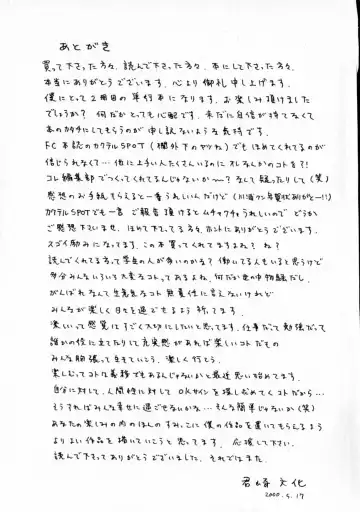 あとがき
買って下さった方々、読んで下さった方々、本にして下さった方々、
本当にありがとうございます。心より御礼申し上げます。
僕にとって2冊目の単行本になります。お楽しみ頂けました
でしょうか？何だかとっても心配です。未だに自信が持てなくて
本のカタチにしてもらうのが申し訳ないような気持です。
FC本誌のカクテルSPOT(欄外下のヤツね)でもほめてくれてるのが
信じられなくて…他に上手い人たくさんいるのにオレなんかのコトを?!
コレ編集部でつくってくれてるんじゃないか〜？なんて疑ったりして(笑)
感想のお手紙もらえると一番うれしいんだけど
カクテルSPOTでも一言ご報告頂けるとムチャクチャうれしいので どうか
ご感想下さいませ。ほめて下さってる方々ホントにありがとうございます。
スゴイ励みになってます。この本買ってくれてますよね？ね？
読んでくれてる方って学生の人が多いのかな？働いてる人もいると思うけど
多分みんないろいろ大変なコトってあるよね。何だか世の中物騒だし。
がんばれなんて生意気なコト無責任に言えないけれど
みんなが楽しく日々を過ごせるよう祈ってます。
楽しいって感覚はすごく大切にしたいと思ってます。仕事だって勉強だって
誰かの役に立てたりして充実感があれば楽しいコトだもの
みんな胸張って生きていこう。楽しく行こう。
楽しむってコトは義務でもあるんじゃないかと最近思い始めてます。
自分に対して、人間性に対してOKサインを探し求めてくコトだから…
そうすればみんな幸せに過ごせないかな…そんな簡単じゃないか(笑)
あなたの楽しみの内のほんのすみっこに僕の作品を置いてもらえるよう
よりよい作品を描いていこうと思ってます。応援して下さい。
読んで下さってありがとうございました。それではまた。
2000.4.17